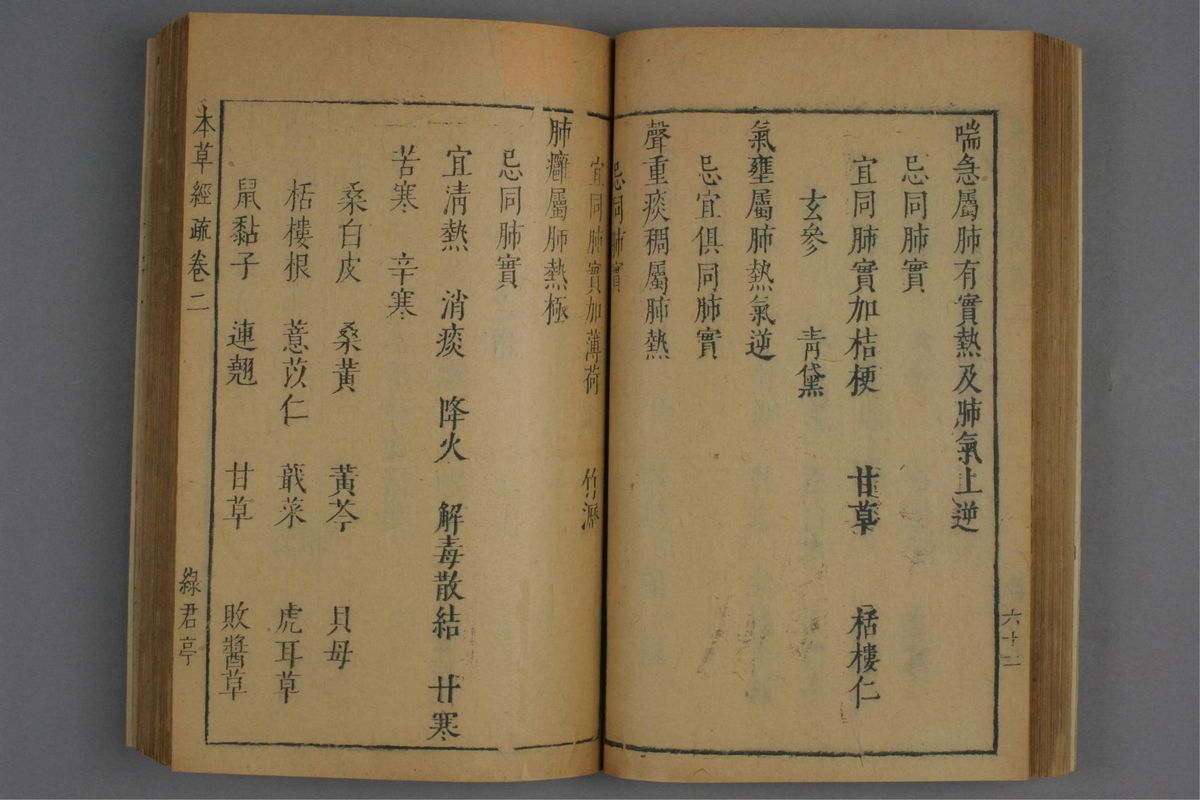 喘急屬肺有實熱及肺氣上逆
忌同肺實
宜同肺實加桔梗 甘草 栝樓仁
玄參 青黛
氣壅屬肺熱氣逆
忌宜俱同肺實
聲重痰稠屬肺熱
忌同肺實
宜同肺實加薄荷 竹瀝
肺癰屬肺熱極
忌同肺實
宜清熱 消痰 降火 解毒散結 甘寒
苦寒 辛寒
桑白皮 桑黃 黃芩 貝母
栝樓根 薏苡仁 蕺菜 虎耳草
鼠黏子 連翹 甘草 敗醬草
本草經疏卷二
綠君亭
六十二